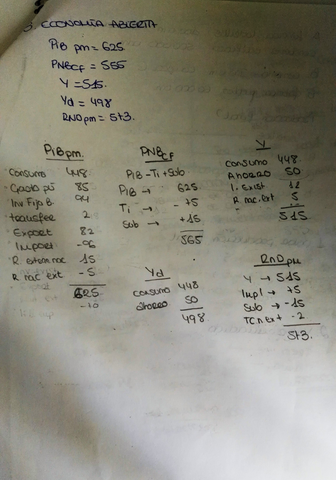 3. ECONOMÍA ABIERTA
PIB pm = 625
PNBCF = 565
Y = 515.
Yd = 498
RND pm = 573.
PIB pm.
Consumo 448
Gasto pú 85
Inv Fija B. 94
transfee 2
Export 82
Import -96
R extran nac 15
R nac ext -5
625
-10
PNBCF
PIB - Ti + Sub
PIB → 625
Ti → -75
Sub → +15
565
Y
Consumo 448
Ahorro 50
I. Exist 12
R nac. Ext 5
515
Yd
Consumo 448
Ahorro 50
498
RND pm
Y → 515
Impl → 75
Sub → -15
TCn Ext → -2
573.